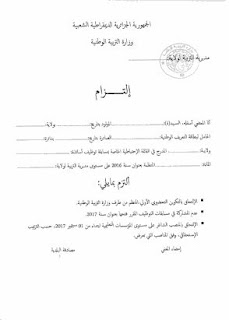 الجمهورية الجزائرية الديمقراطية الشعبية
وزارة التربية الوطنية
مديرية التربية لولاية:
إلتـــزام
أنا الممضي أسفله، السيد(ة) ............ المولود بتاريخ: ............ ولاية: ............
الحامل لبطاقة التعريف الوطنية: ............ الصادرة بتاريخ: ............ بدائرة: ............
ولاية: ............ المدرج في القائمة الإحتياطية الخاصة بمسابقة توظيف أساتذة: ............
المادة: ............ المنظمة بعنوان سنة 2016 على مستوى مديرية التربية لولاية: ............
ألتزم بمايلي:
الإلتحاق بالتكوين التحضيري الأولي المنظم من طرف وزارة التربية الوطنية.
عدم المشاركة في مسابقات التوظيف المقرر فتحها بعنوان سنة 2017.
الإلتحاق بالمنصب الشاغر على مستوى المؤسسات التعليمية ابتداء من سبتمبر 2017، حسب الترتيب
الإستحقاقي، وفق المناصب التي تعرض.
إمضاء المعني
مصادقة البلدية